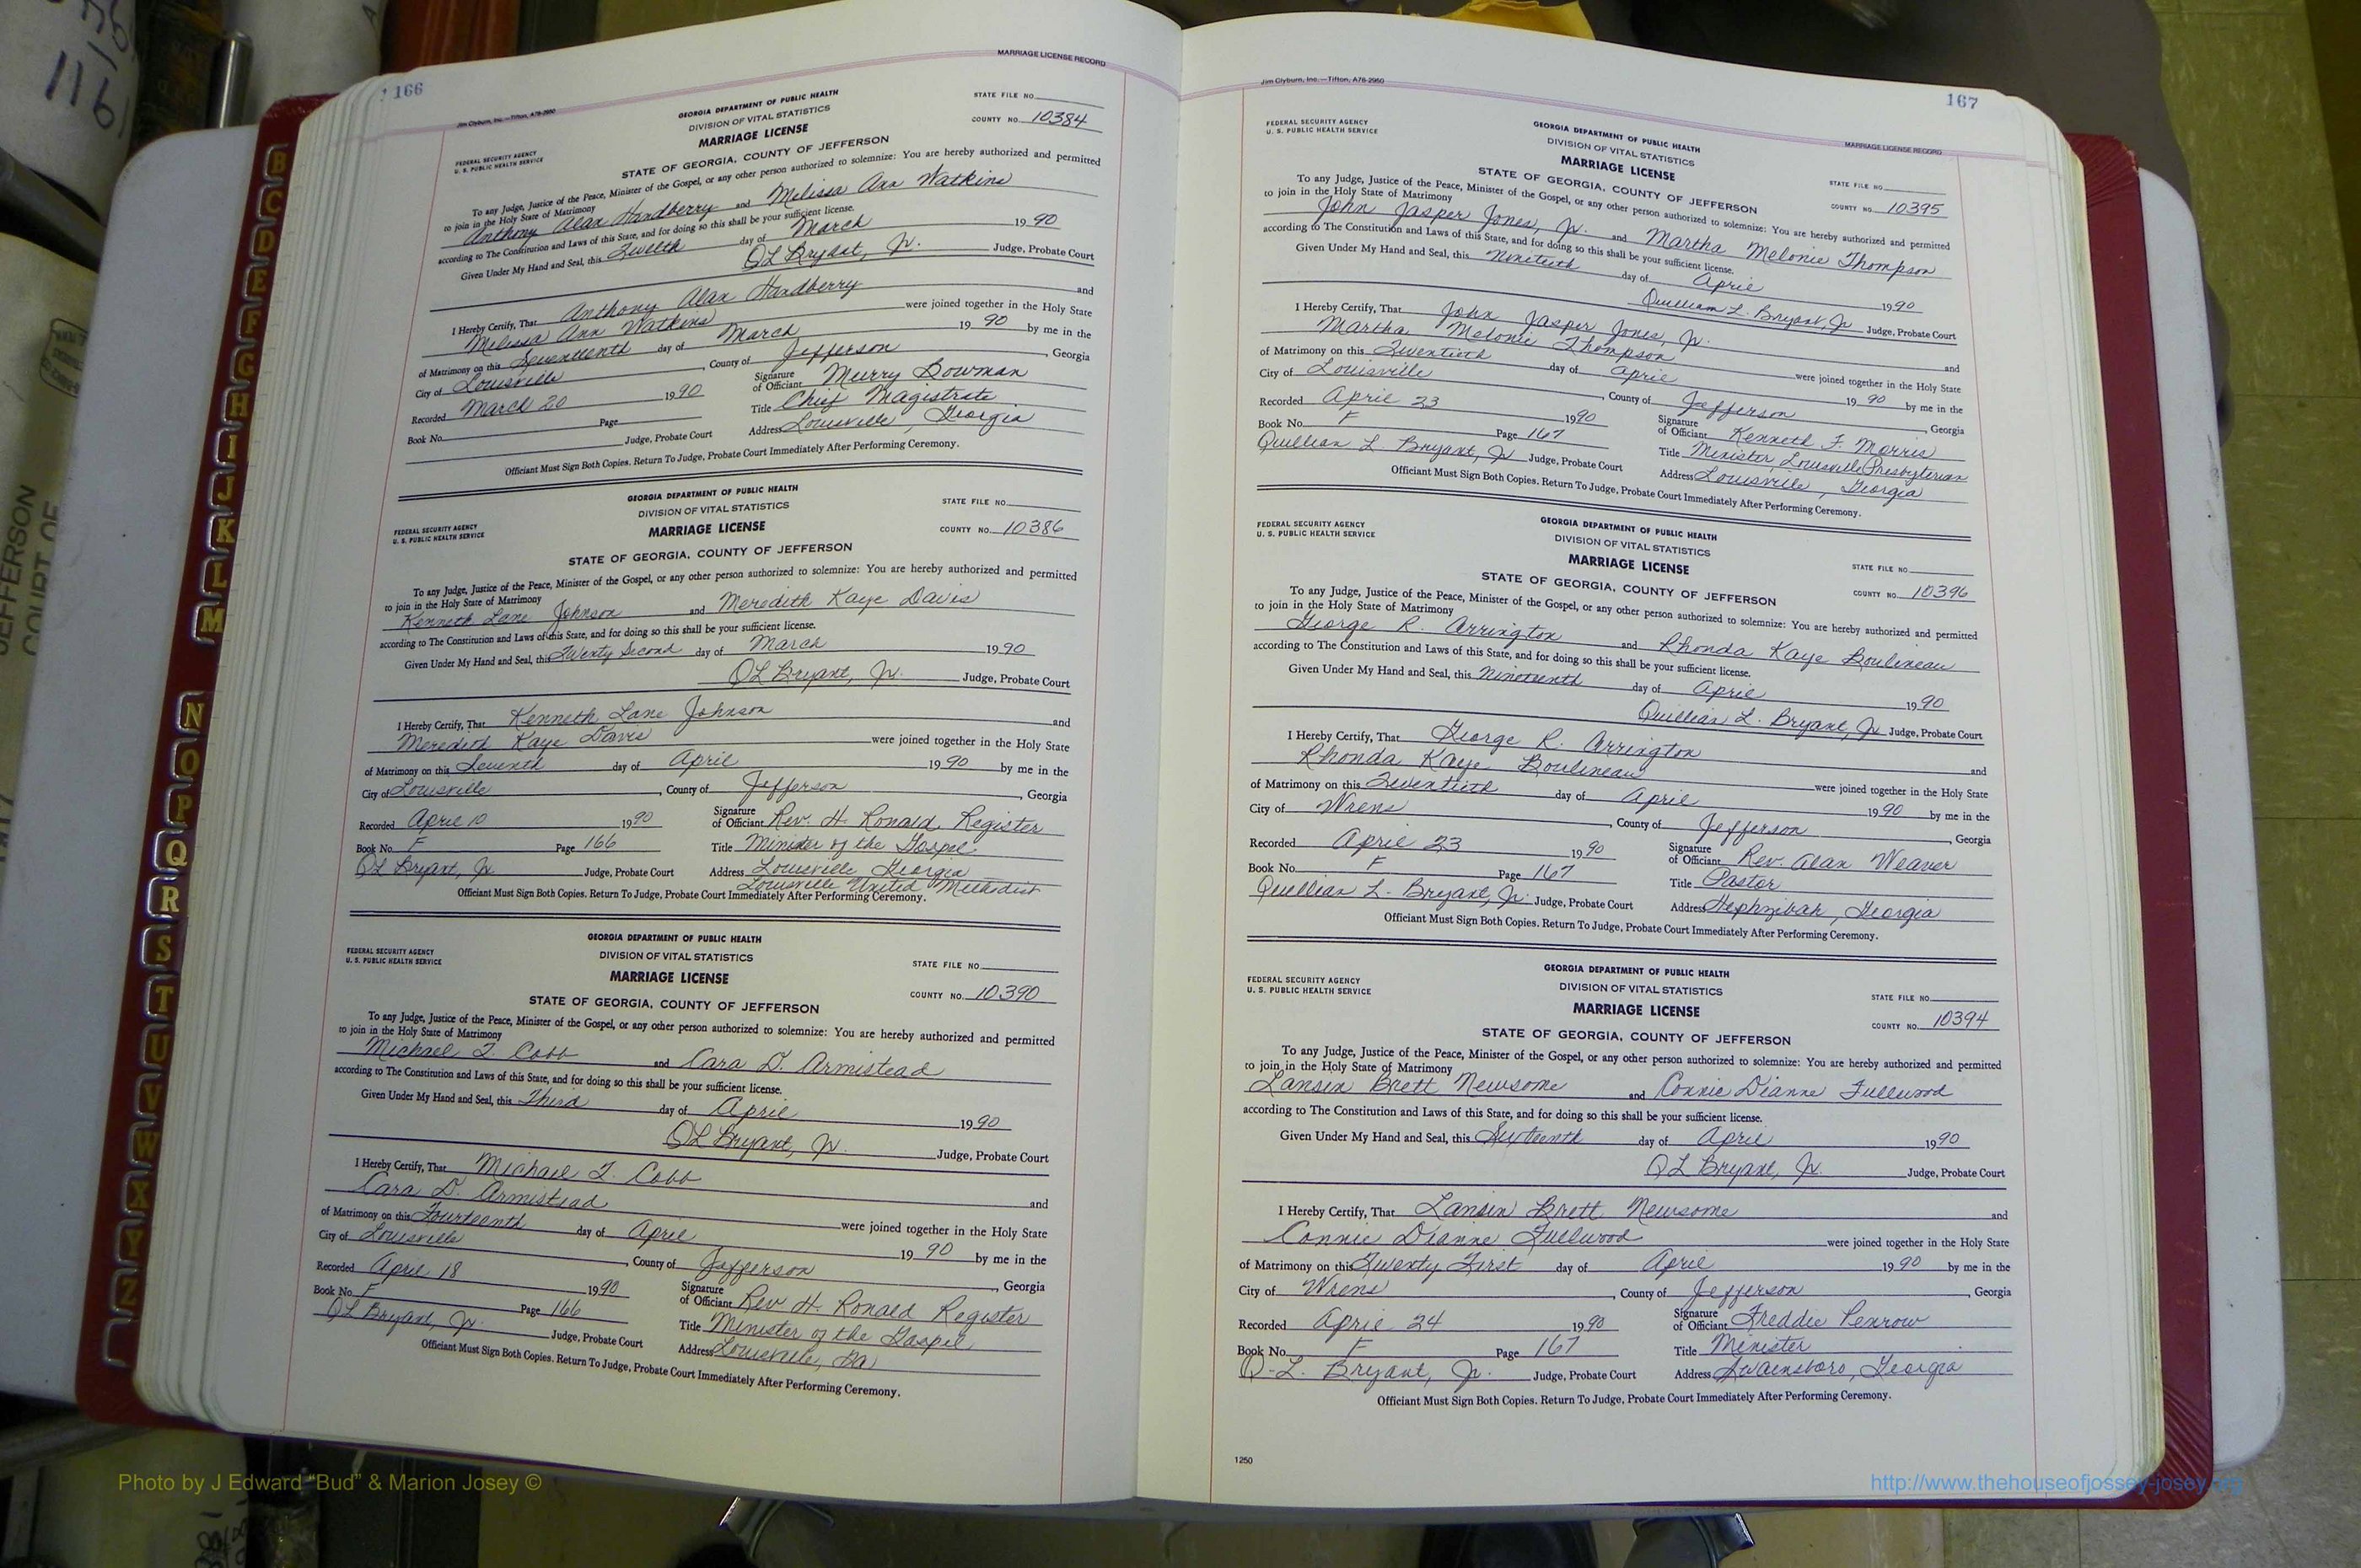 166
MARRIAGE LICENSE RECORD
Jim Clyburn, Inc.—Tifton, A78-2950
GEORGIA DEPARTMENT OF PUBLIC HEALTH
DIVISION OF VITAL STATISTICS
MARRIAGE LICENSE
STATE OF GEORGIA, COUNTY OF JEFFERSON
FEDERAL SECURITY AGENCY
U. S. PUBLIC HEALTH SERVICE
STATE FILE NO.
COUNTY NO. 10384
To any Judge, Justice of the Peace, Minister of the Gospel, or any other person authorized to solemnize: You are hereby authorized and permitted
to join in the Holy State of Matrimony
Anthony Alan Handberry and Melissa Ann Watkins
according to The Constitution and Laws of this State, and for doing so this shall be your sufficient license.
Given Under My Hand and Seal, this Twelth day of March 1990
QL Bryant, Jr. Judge, Probate Court
I Hereby Certify, That Anthony Alan Handberry and
Melissa Ann Watkins were joined together in the Holy State
of Matrimony on this Seventeenth day of March 1990 by me in the
City of Louisville, County of Jefferson, Georgia
Recorded March 20 1990 Signature of Officiant Murry Bowman
Book No. Page Title Chief Magistrate
Judge, Probate Court Address Louisville, Georgia
Officiant Must Sign Both Copies. Return To Judge, Probate Court Immediately After Performing Ceremony.
GEORGIA DEPARTMENT OF PUBLIC HEALTH
DIVISION OF VITAL STATISTICS
MARRIAGE LICENSE
STATE OF GEORGIA, COUNTY OF JEFFERSON
FEDERAL SECURITY AGENCY
U. S. PUBLIC HEALTH SERVICE
STATE FILE NO.
COUNTY NO. 10386
To any Judge, Justice of the Peace, Minister of the Gospel, or any other person authorized to solemnize: You are hereby authorized and permitted
to join in the Holy State of Matrimony
Kenneth Lane Johnson and Meredith Kaye Davis
according to The Constitution and Laws of this State, and for doing so this shall be your sufficient license.
Given Under My Hand and Seal, this Twenty Second day of March 1990
QL Bryant, Jr. Judge, Probate Court
I Hereby Certify, That Kenneth Lane Johnson and
Meredith Kaye Davis were joined together in the Holy State
of Matrimony on this Seventh day of April 1990 by me in the
City of Louisville, County of Jefferson, Georgia
Recorded April 10 1990 Signature of Officiant Rev. H. Ronald Register
Book No. F Page 166 Title Minister of the Gospel
QL Bryant, Jr. Judge, Probate Court Address Louisville Georgia
Louisville United Methodist
Officiant Must Sign Both Copies. Return To Judge, Probate Court Immediately After Performing Ceremony.
GEORGIA DEPARTMENT OF PUBLIC HEALTH
DIVISION OF VITAL STATISTICS
MARRIAGE LICENSE
STATE OF GEORGIA, COUNTY OF JEFFERSON
FEDERAL SECURITY AGENCY
U. S. PUBLIC HEALTH SERVICE
STATE FILE NO.
COUNTY NO. 10390
To any Judge, Justice of the Peace, Minister of the Gospel, or any other person authorized to solemnize: You are hereby authorized and permitted
to join in the Holy State of Matrimony
Michael T. Cobb and Cara D. Armistead
according to The Constitution and Laws of this State, and for doing so this shall be your sufficient license.
Given Under My Hand and Seal, this Third day of April 1990
QL Bryant, Jr. Judge, Probate Court
I Hereby Certify, That Michael T. Cobb and
Cara D. Armistead were joined together in the Holy State
of Matrimony on this Fourteenth day of April 1990 by me in the
City of Louisville, County of Jefferson, Georgia
Recorded April 18 1990 Signature of Officiant Rev H. Ronald Register
Book No. F Page 166 Title Minister of the Gospel
QL Bryant, Jr. Judge, Probate Court Address Louisville, Ga
Officiant Must Sign Both Copies. Return To Judge, Probate Court Immediately After Performing Ceremony.
167
Jim Clyburn, Inc.—Tifton, A78-2950
MARRIAGE LICENSE RECORD
FEDERAL SECURITY AGENCY
U. S. PUBLIC HEALTH SERVICE
GEORGIA DEPARTMENT OF PUBLIC HEALTH
DIVISION OF VITAL STATISTICS
MARRIAGE LICENSE
STATE OF GEORGIA, COUNTY OF JEFFERSON
STATE FILE NO.
COUNTY NO. 10395
To any Judge, Justice of the Peace, Minister of the Gospel, or any other person authorized to solemnize: You are hereby authorized and permitted
to join in the Holy State of Matrimony
John Jasper Jones, Jr. and Martha Melonie Thompson
according to The Constitution and Laws of this State, and for doing so this shall be your sufficient license.
Given Under My Hand and Seal, this day of April 1990
Quillian L. Bryant, Jr. Judge, Probate Court
I Hereby Certify, That John Jasper Jones, Jr. and
Martha Melonie Thompson were joined together in the Holy State
of Matrimony on this Twentieth day of April 1990 by me in the
City of Louisville, County of Jefferson, Georgia
Recorded April 23 1990 Signature of Officiant Kenneth F. Morris
Book No. F Page 167 Title Minister, Louisville Presbyterian
Quillian L. Bryant, Jr Judge, Probate Court Address Louisville, Georgia
Officiant Must Sign Both Copies. Return To Judge, Probate Court Immediately After Performing Ceremony.
FEDERAL SECURITY AGENCY
U. S. PUBLIC HEALTH SERVICE
GEORGIA DEPARTMENT OF PUBLIC HEALTH
DIVISION OF VITAL STATISTICS
MARRIAGE LICENSE
STATE OF GEORGIA, COUNTY OF JEFFERSON
STATE FILE NO.
COUNTY NO. 10396
To any Judge, Justice of the Peace, Minister of the Gospel, or any other person authorized to solemnize: You are hereby authorized and permitted
to join in the Holy State of Matrimony
George R. Arrington and Rhonda Kaye Boulineau
according to The Constitution and Laws of this State, and for doing so this shall be your sufficient license.
Given Under My Hand and Seal, this Nineteenth day of April 1990
Quillian L. Bryant, Jr Judge, Probate Court
I Hereby Certify, That George R. Arrington and
Rhonda Kaye Boulineau were joined together in the Holy State
of Matrimony on this Twentieth day of April 1990 by me in the
City of Wrens, County of Jefferson, Georgia
Recorded April 23 1990 Signature of Officiant Rev. Alan Weaver
Book No. F Page 167 Title Pastor
Quillian L. Bryant, Jr. Judge, Probate Court Address Hephzibah, Georgia
Officiant Must Sign Both Copies. Return To Judge, Probate Court Immediately After Performing Ceremony.
FEDERAL SECURITY AGENCY
U. S. PUBLIC HEALTH SERVICE
GEORGIA DEPARTMENT OF PUBLIC HEALTH
DIVISION OF VITAL STATISTICS
MARRIAGE LICENSE
STATE OF GEORGIA, COUNTY OF JEFFERSON
STATE FILE NO.
COUNTY NO. 10394
To any Judge, Justice of the Peace, Minister of the Gospel, or any other person authorized to solemnize: You are hereby authorized and permitted
to join in the Holy State of Matrimony
Lansin Brett Newsome and Connie Dianne Fullwood
according to The Constitution and Laws of this State, and for doing so this shall be your sufficient license.
Given Under My Hand and Seal, this Sixteenth day of April 1990
QL Bryant, Jr. Judge, Probate Court
I Hereby Certify, That Lansin Brett Newsome and
Connie Dianne Fullwood were joined together in the Holy State
of Matrimony on this Twenty First day of April 1990 by me in the
City of Wrens, County of Jefferson, Georgia
Recorded April 24 1990 Signature of Officiant Freddie Penrow
Book No. F Page 167 Title Minister
Q-L. Bryant, Jr. Judge, Probate Court Address Swainsboro, Georgia
Officiant Must Sign Both Copies. Return To Judge, Probate Court Immediately After Performing Ceremony.
1250
B
C
D
E
F
G
H
I
J
K
L
M
N
O
P
Q
R
S
T
U
V
W
X
Y
Z
JEFFERSON
COURT OF
Photo by J Edward “Bud” & Marion Josey ©
http://www.thehouseofjossey-josey.org